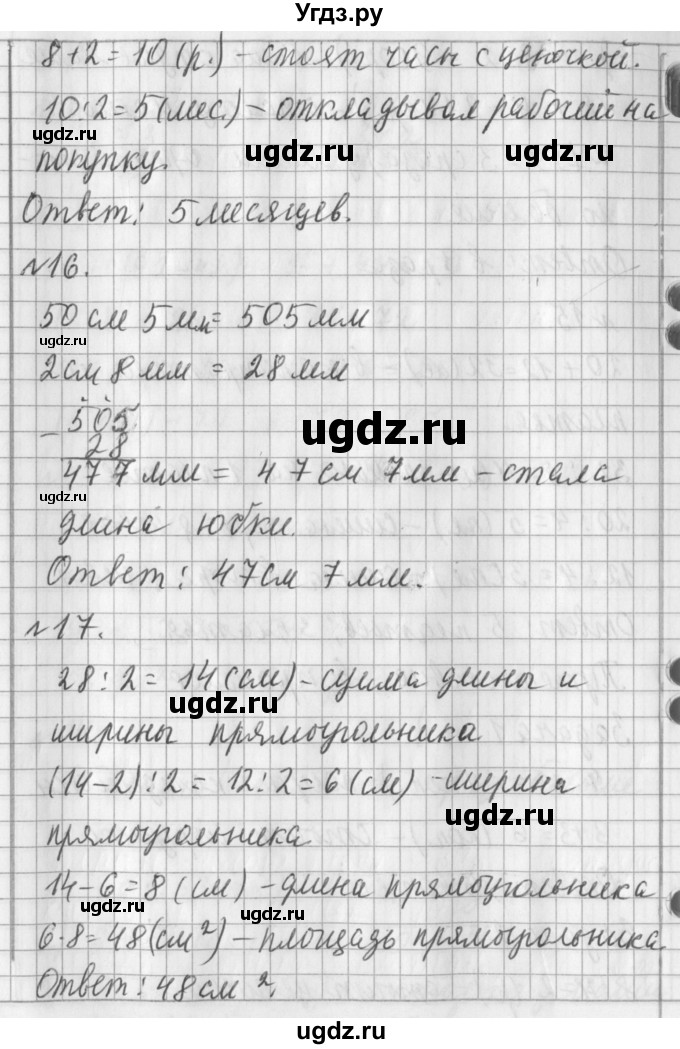 Угдз.ру
8+2=10(р.) – стоят часы с цепочкой.
10:2=5(мес.) – откладывал рабочий на
ugdz.ru
ugdz.ru
ugdz.ru
покупку.
Ответ: 5 месяцев.
№16.
50 см 5 мм = 505 мм
ugdz.ru
2 см 8 мм = 28 мм
505
ugdz.ru
– 28
477 мм = 47 см 7 мм – стала
ugdz.ru
длина юбки.
Ответ: 47 см 7 мм.
№17.
28:2= 14(см) – сумма длины и
ugdz.ru
ширины прямоугольника
(14–2):2= 12:2=6(см) – ширина
ugdz.ru
прямоугольника
14–6=8 (см) – длина прямоугольника
ugdz.ru
ugdz.ru
6·8=48(см²) – площадь прямоугольника
Ответ: 48 см².
ugdz.ru
ugdz.ru